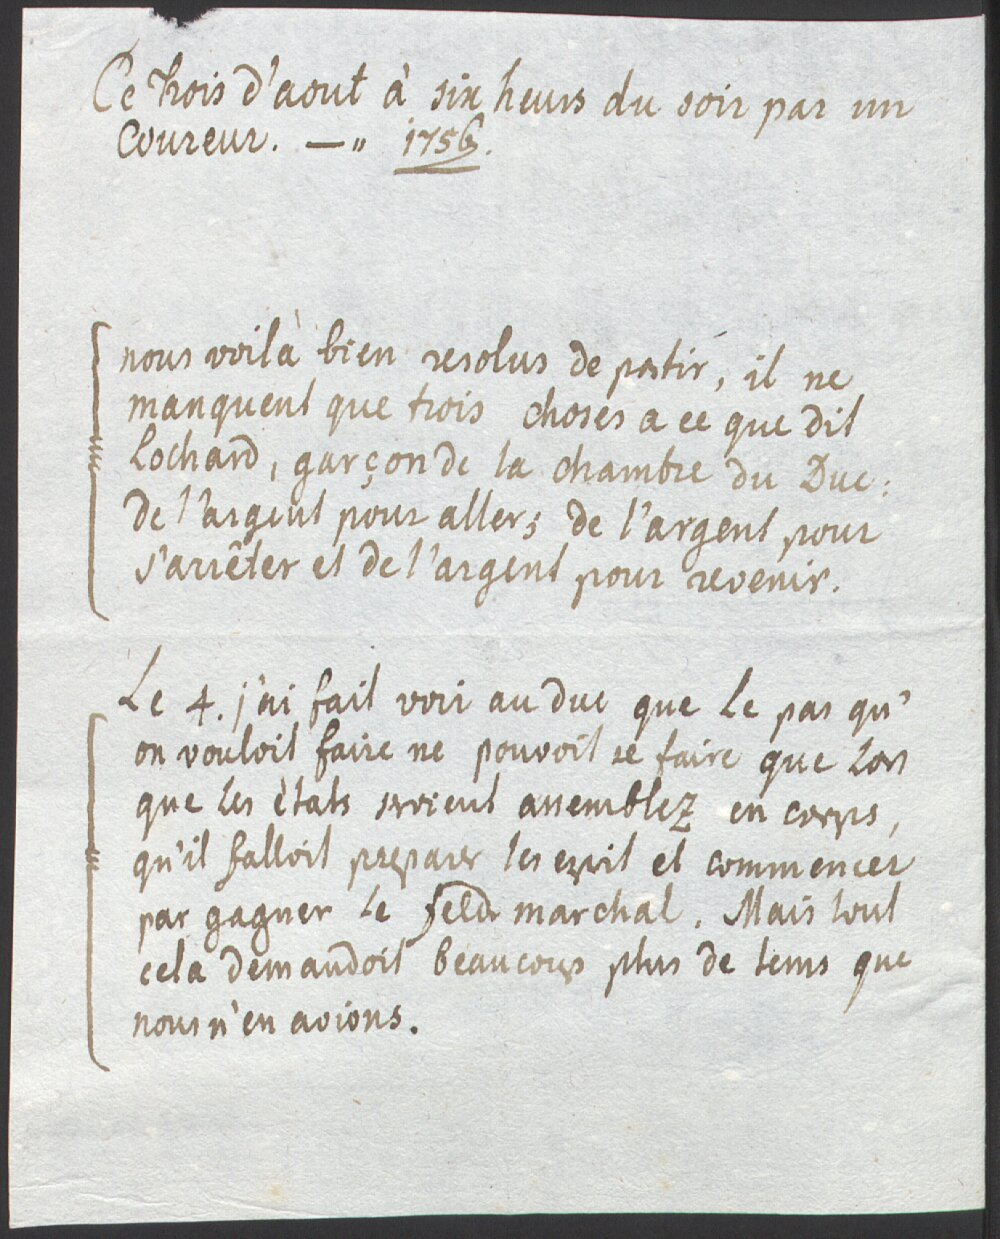 Ce trois d'aout à six heurs du soir par un
Coureur. —„ 1756.
nous voilà bien resolus de partir, il ne
manquent que trois choses a ce que dit
Lochard, garçon de la chambre du Duc:
de l'argent pour aller; de l'argent pour
s'arrêter et de l'argent pour revenir.
Le 4. j'ai fait voir au duc que le pas qu'
on vouloit faire ne pouvoit se faire que lors
que les ètats seroient assemblez en corps,
qu'il falloit preparer les esprit et commencer
par gagner le feldmarchal. Mais tout
cela demandoit beaucoup plus de tems que
nous n'en avions.